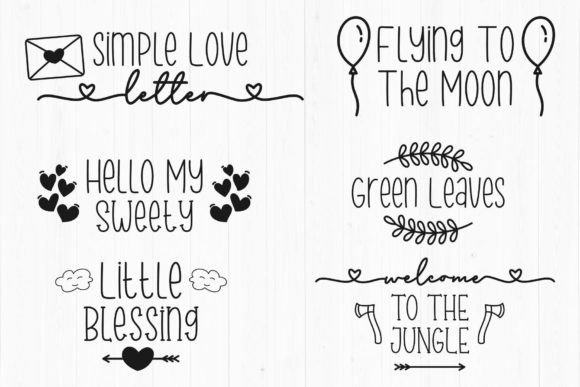 Simple Love
letter
Hello My
Sweety
Little
Blessing
Flying To
The Moon
Green Leaves
welcome
TO THE
JUNGLE